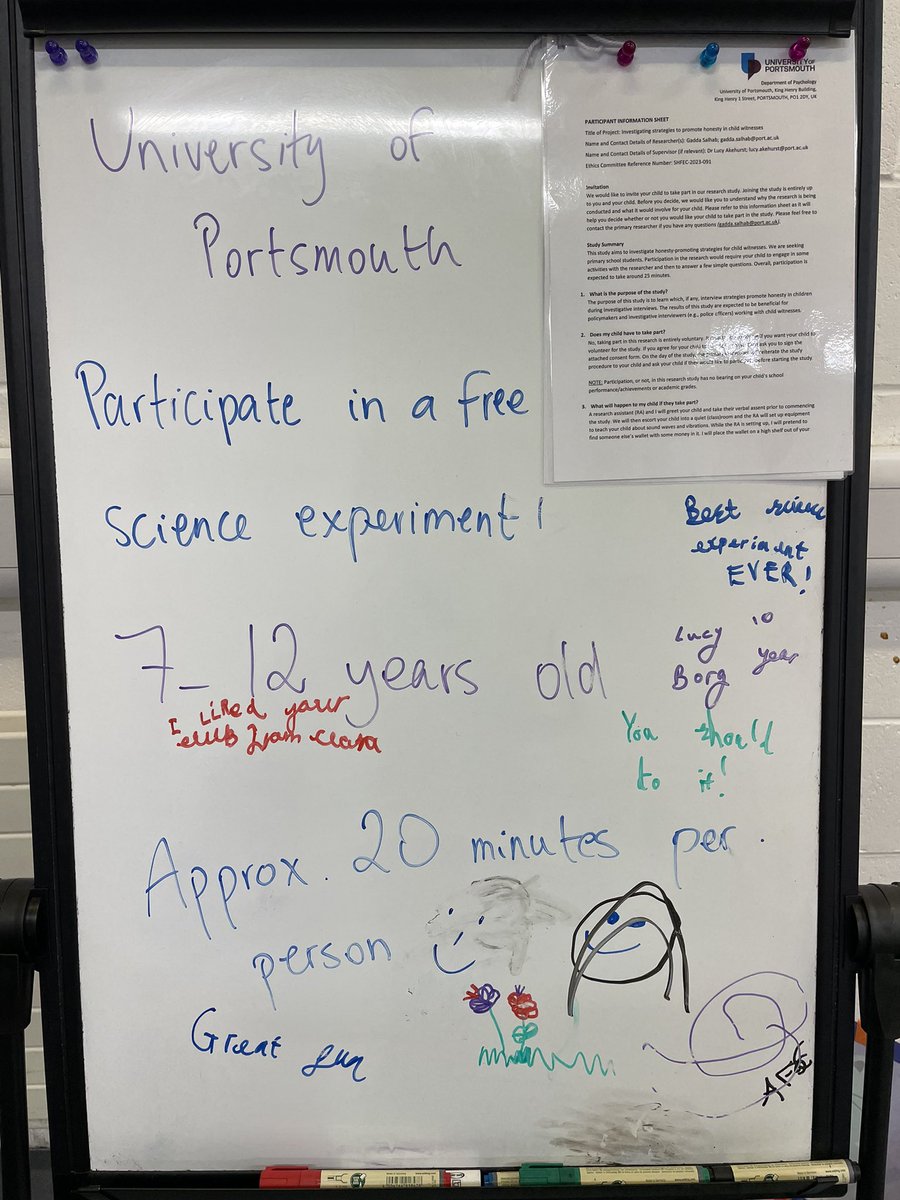 University of
Portsmouth
UNIVERSITY OF
PORTSMOUTH
Department of Psychology
University of Portsmouth, King Henry Building,
King Henry 1 Street, PORTSMOUTH, PO1 2DY, UK
PARTICIPANT INFORMATION SHEET
Title of Project: Investigating strategies to promote honesty in child witnesses
Name and Contact Details of Researcher(s): Gadda Salhab; gadda.salhab@port.ac.uk
Name and Contact Details of Supervisor (if relevant): Dr Lucy Akehurst; lucy.akehurst@port.ac.uk
Ethics Committee Reference Number: SHFEC-2023-091
Invitation
We would like to invite your child to take part in our research study. Joining the study is entirely up
to you and your child. Before you decide, we would like you to understand why the research is being
conducted and what it would involve for your child. Please refer to this information sheet as it will
help you decide whether or not you would like your child to take part in the study. Please feel free to
contact the primary researcher if you have any questions (gadda.salhab@port.ac.uk).
Study Summary
This study aims to investigate honesty-promoting strategies for child witnesses. We are seeking
primary school students. Participation in the research would require your child to engage in some
activities with the researcher and then to answer a few simple questions. Overall, participation is
expected to take around 25 minutes.
1. What is the purpose of the study?
The purpose of this study is to learn which, if any, interview strategies promote honesty in children
during investigative interviews. The results of this study are expected to be beneficial for
policymakers and investigative interviewers (e.g., police officers) working with child witnesses.
2. Does my child have to take part?
No, taking part in this research is entirely voluntary. if you want your child to
volunteer for the study. If you agree for your child to ask you to sign the
attached consent form. On the day of the study, the study
procedure to your child and ask your child if they would like to before starting the study
NOTE: Participation, or not, in this research study has no bearing on your child's school
performance/achievements or academic grades.
3. What will happen to my child if they take part?
A research assistant (RA) and I will greet your child and take their verbal assent prior to commencing
the study. We will then escort your child into a quiet (class)room and the RA will set up equipment
to teach your child about sound waves and vibrations. While the RA is setting up, I will pretend to
find someone else's wallet with some money in it. I will place the wallet on a high shelf out of your
Participate in a free
science experiment!
Best science
experiment
EVER!
7-12 years old
Lucy 10
Borg year
I Liked your
You should
to it!
Approx. 20 minutes per
person
Great fun